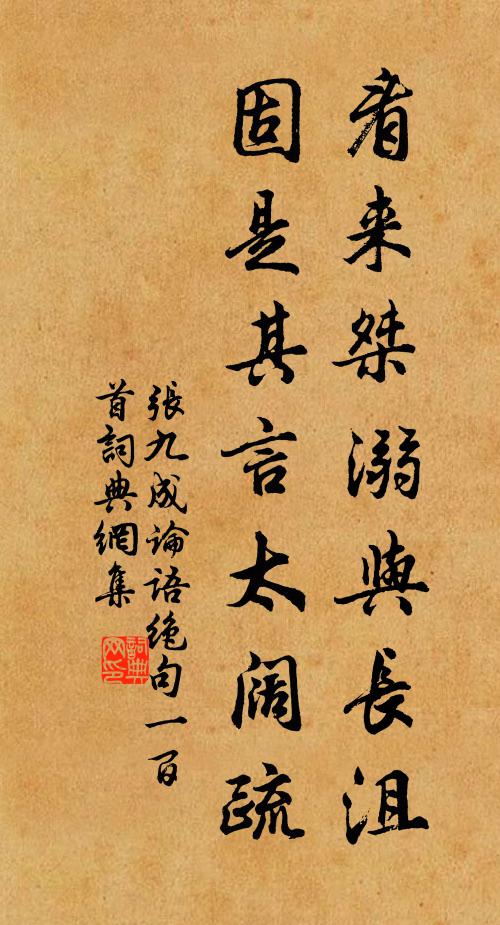 看来桀溺與長沮
固是其言太阔疏
張九成論語绝句一百
首詞典網集
詞典网印